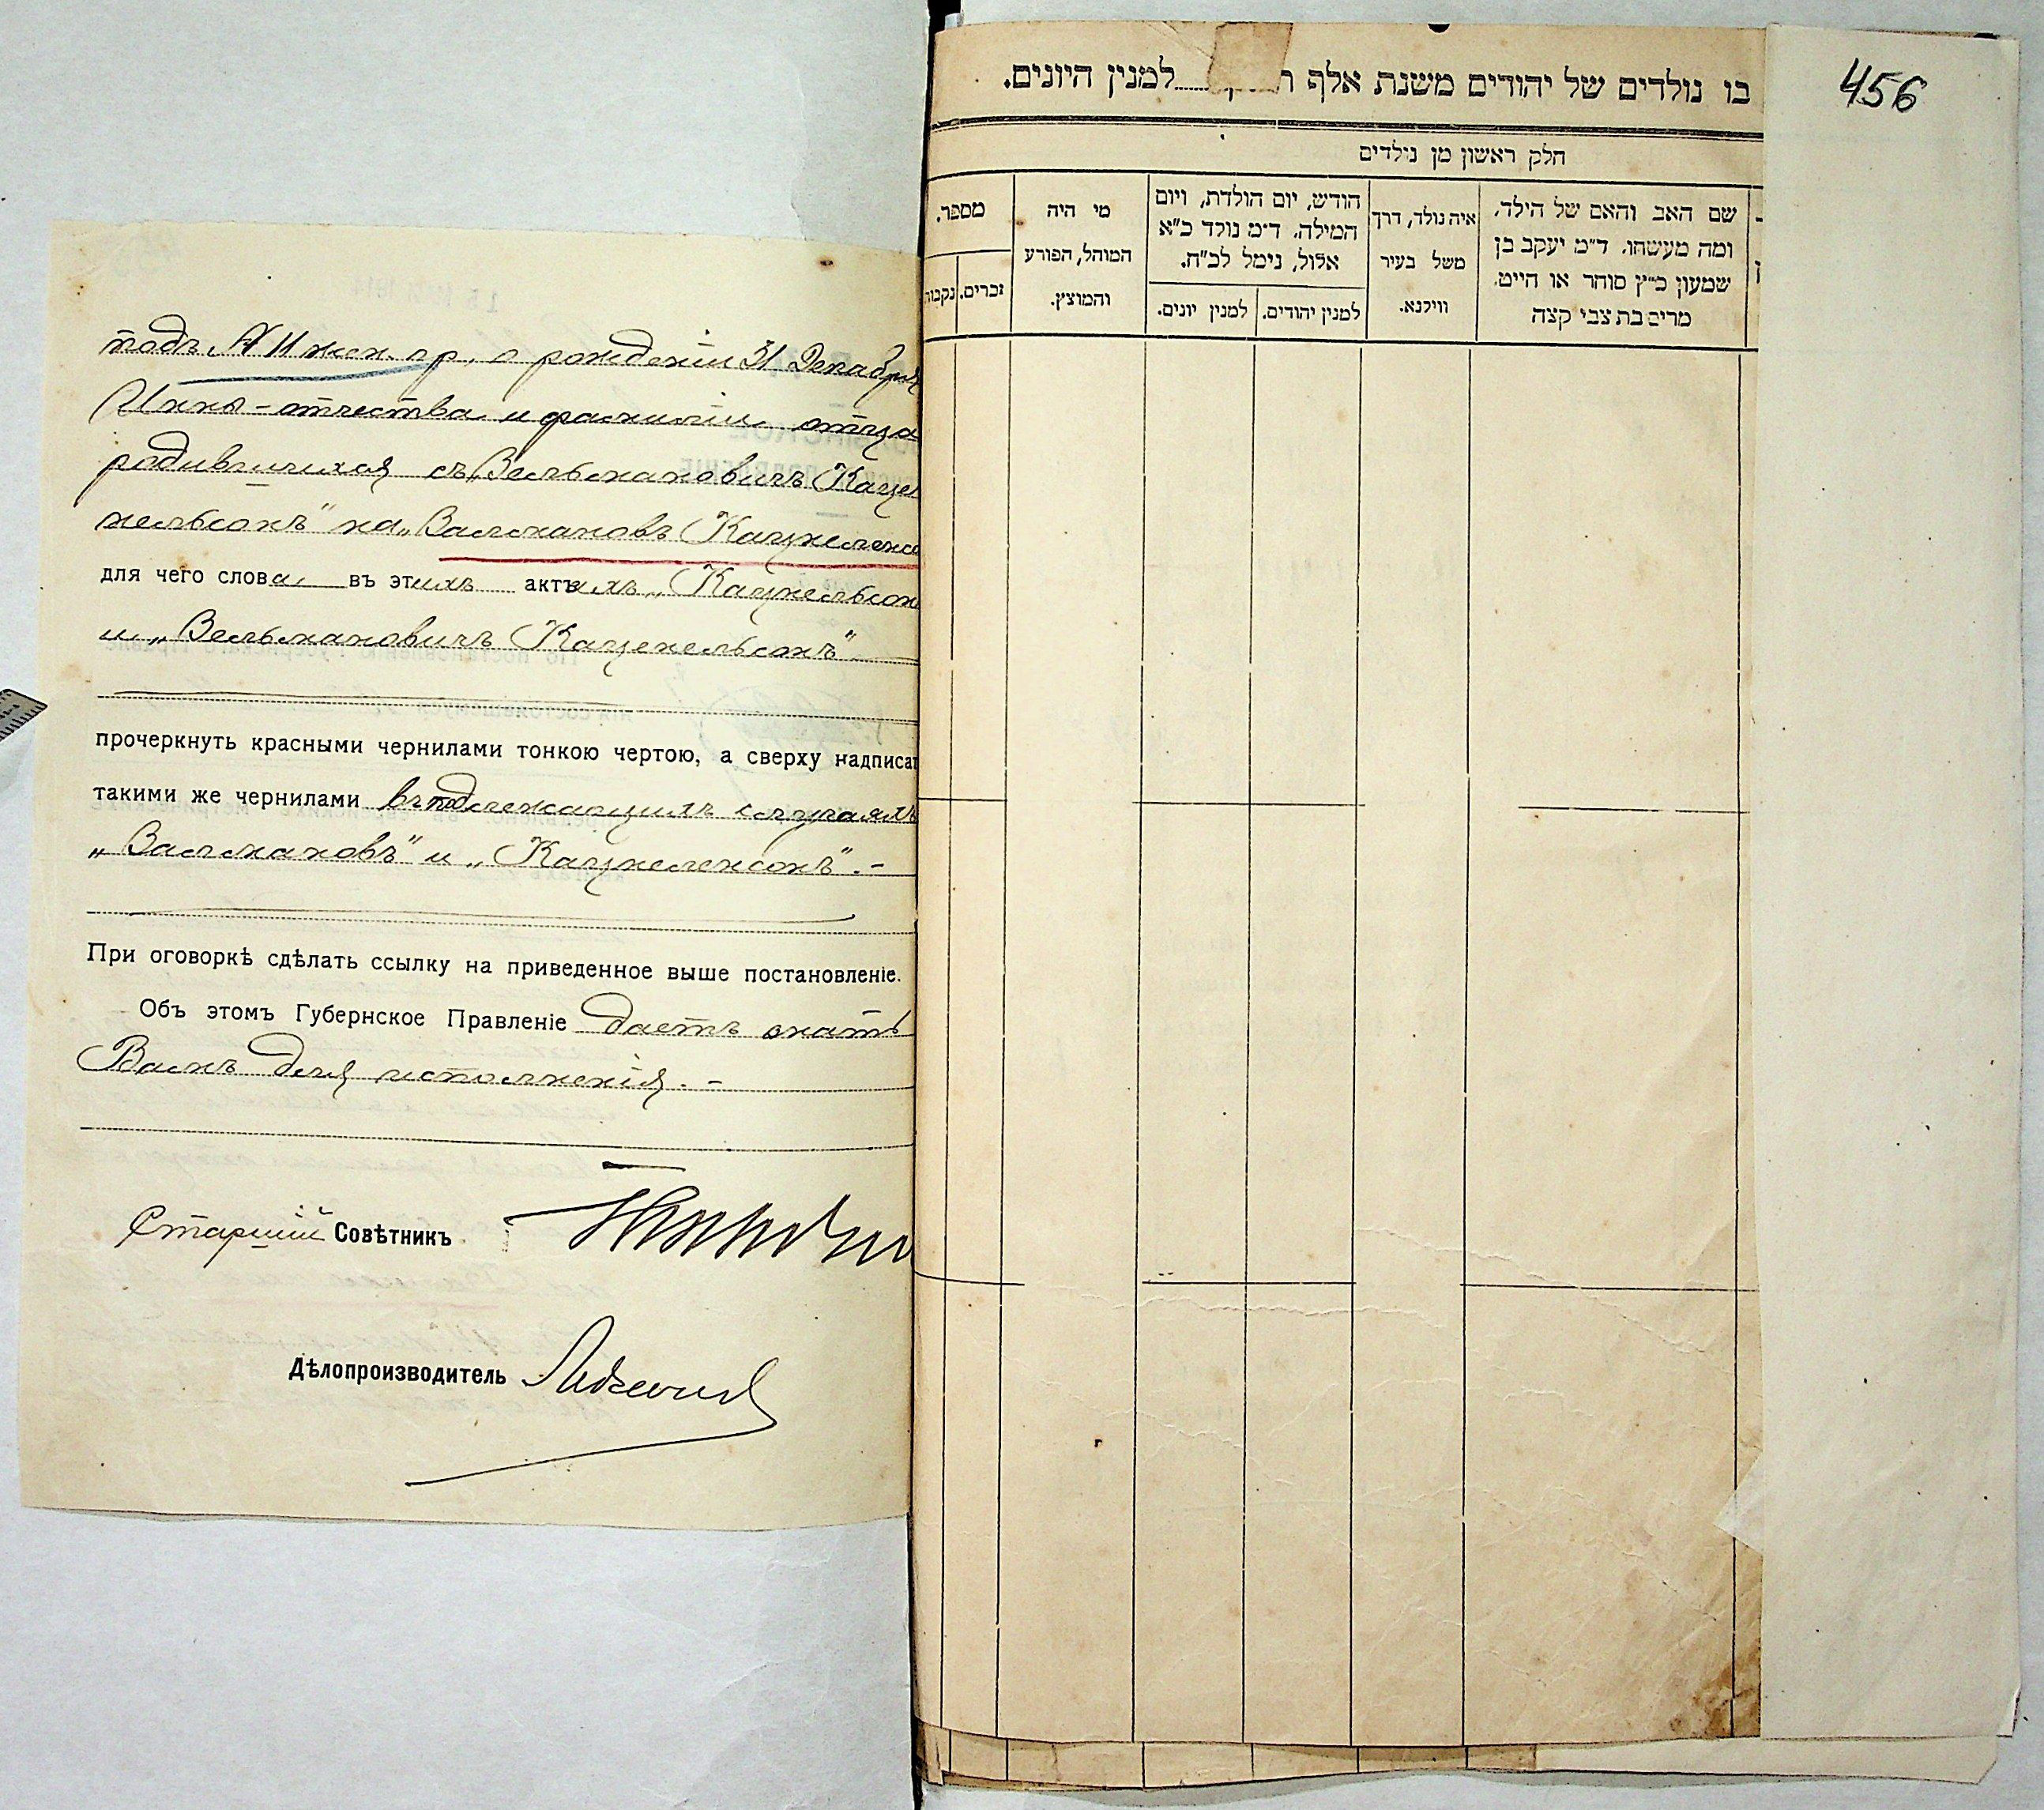 подъ № 11 жен. пр., о рожденіи 31 Декабря
отчества и фамиліи отца
родившихся съ „Вельмановичъ Каце
нельсонъ" на „Залмановъ Кацнеленсо
для чего слова въ этихъ актахъ „Кацнельсон
и „Вельмановичъ Каценельсонъ"
прочеркнуть красными чернилами тонкою чертою, а сверху надписат
такими же чернилами въ подлежащихъ случаяхъ
„Залмановъ" и „Кацнеленсонъ".-
При оговоркѣ сдѣлать ссылку на приведенное выше постановленіе.
Объ этомъ Губернское Правленіе даетъ знать
Вамъ для исполненія.-
Старшій Совѣтникъ
Дѣлопроизводитель
456
בו נולדים של יהודים משנת אלף למנין היונים.
חלק ראשון מן נולדים
שם האב והאם של הילד,
ומה מעשהו. ד"מ יעקב בן
שמעון כ"ץ סוחר או חייט.
מרים בת צבי קצה
איה נולד, דרך
משל בעיר
ווילנא.
חודש, יום הולדת, ויום
המילה. ד"מ נולד כ"א
אלול, נימל לכ"ח.
למנין יהודים.
למנין יונים.
מי היה
המוהל, הפורע
והמוצץ.
מספר.
זכרים.
נקבות